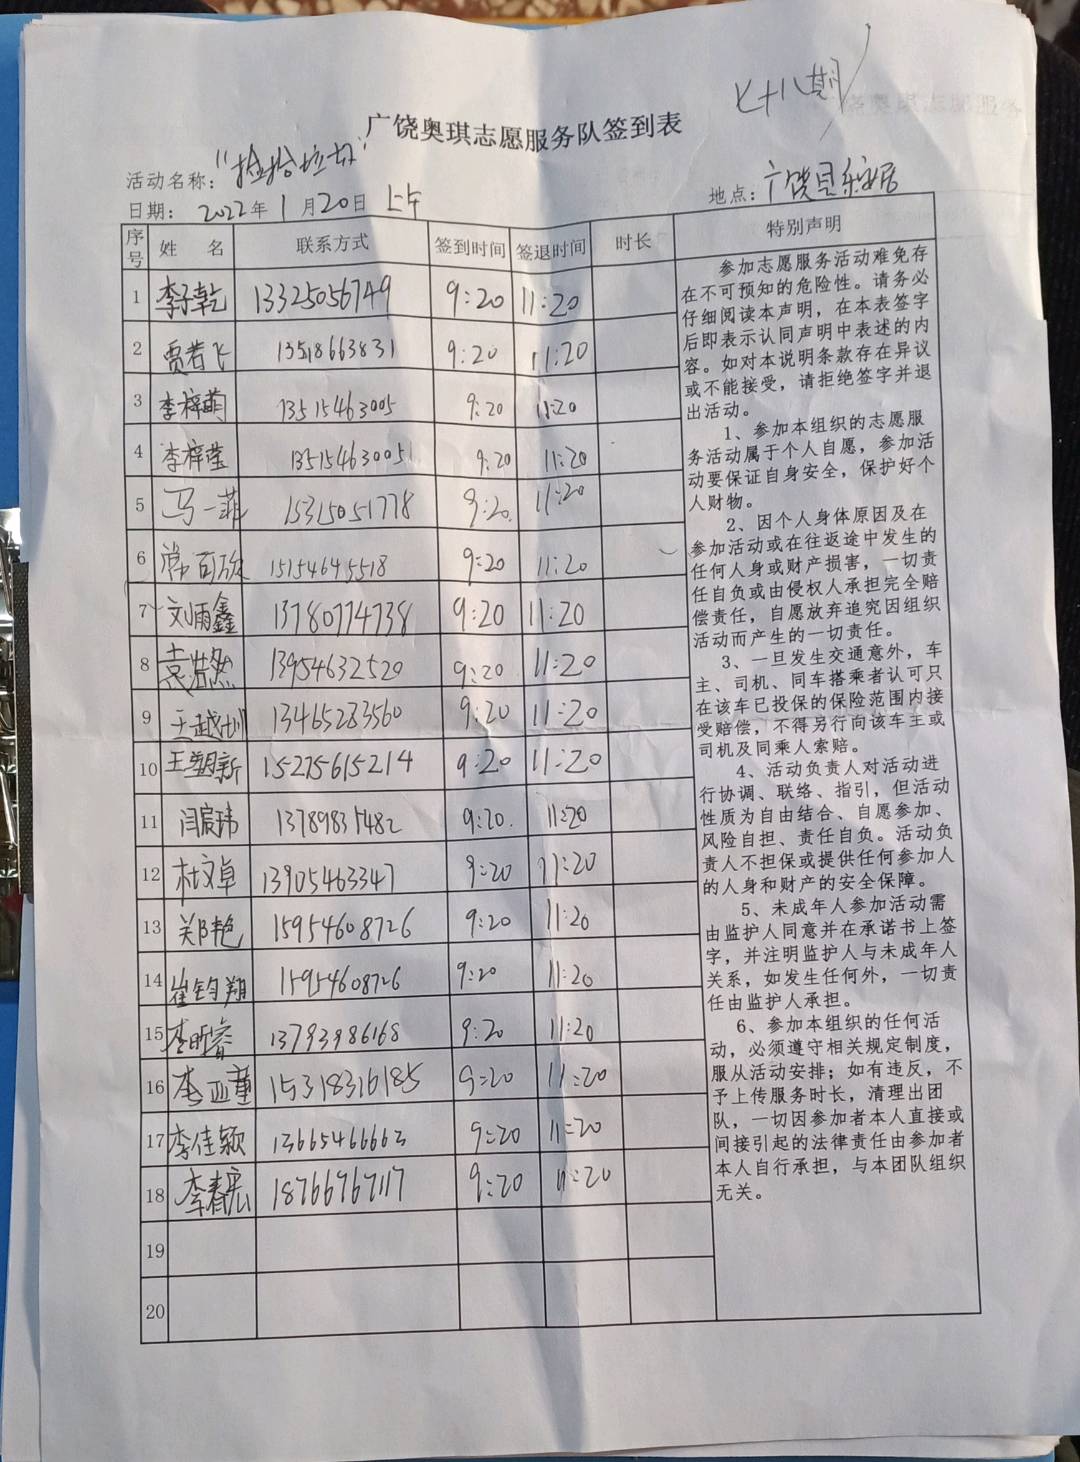 七十八期
广饶奥琪志愿服务队签到表
活动名称：“捡拾垃圾”
地点：广饶县乐安居
日期： 2022年 1 月20日 上午
序号 姓 名 联系方式 签到时间 签退时间 时长 特别声明
1 李子乾 13325056749 9:20 11:20
2 贾若飞 13518663831 9:20 11:20
3 李梓萌 13515463005 9:20 11:20
4 李梓莹 13515463005 9:20 11:20
5 马一菲 15315051778 9:20 11:20
6 常百欣 15154645518 9:20 11:20
7 刘雨鑫 13780774738 9:20 11:20
8 袁浩然 13954632520 9:20 11:20
9 王越圳 13465283560 9:20 11:20
10 王塑新 15275615214 9:20 11:20
11 闫宸玮 13789831482 9:20 11:20
12 杜文卓 13905463347 9:20 11:20
13 郑艳 15954608726 9:20 11:20
14 崔钧翔 15954608726 9:20 11:20
15 李昕睿 13793986168 9:20 11:20
16 李亚童 15318316185 9:20 11:20
17 李佳颖 13665466663 9:20 11:20
18 李春宏 18766967117 9:20 11:20
19
20
参加志愿服务活动难免存
在不可预知的危险性。请务必
仔细阅读本声明，在本表签字
后即表示认同声明中表述的内
容。如对本说明条款存在异议
或不能接受，请拒绝签字并退
出活动。
1、参加本组织的志愿服
务活动属于个人自愿，参加活
动要保证自身安全，保护好个
人财物。
2、因个人身体原因及在
参加活动或在往返途中发生的
任何人身或财产损害，一切责
任自负或由侵权人承担完全赔
偿责任，自愿放弃追究因组织
活动而产生的一切责任。
3、一旦发生交通意外，车
主、司机、同车搭乘者认可只
在该车已投保的保险范围内接
受赔偿，不得另行向该车主或
司机及同乘人索赔。
4、活动负责人对活动进
行协调、联络、指引，但活动
性质为自由结合、自愿参加、
风险自担、责任自负。活动负
责人不担保或提供任何参加人
的人身和财产的安全保障。
5、未成年人参加活动需
由监护人同意并在承诺书上签
字，并注明监护人与未成年人
关系，如发生任何外，一切责
任由监护人承担。
6、参加本组织的任何活
动，必须遵守相关规定制度，
服从活动安排；如有违反，不
予上传服务时长，清理出团
队，一切因参加者本人直接或
间接引起的法律责任由参加者
本人自行承担，与本团队组织
无关。